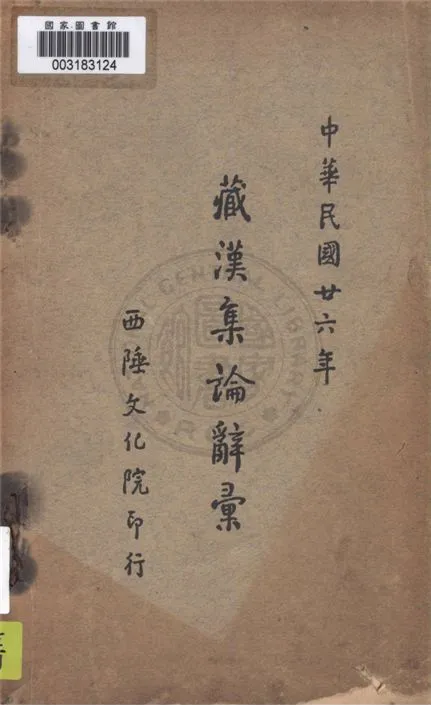 國家圖書館
003183124
中華民國廿六年
藏漢集論辭彙
西陲文化院印行